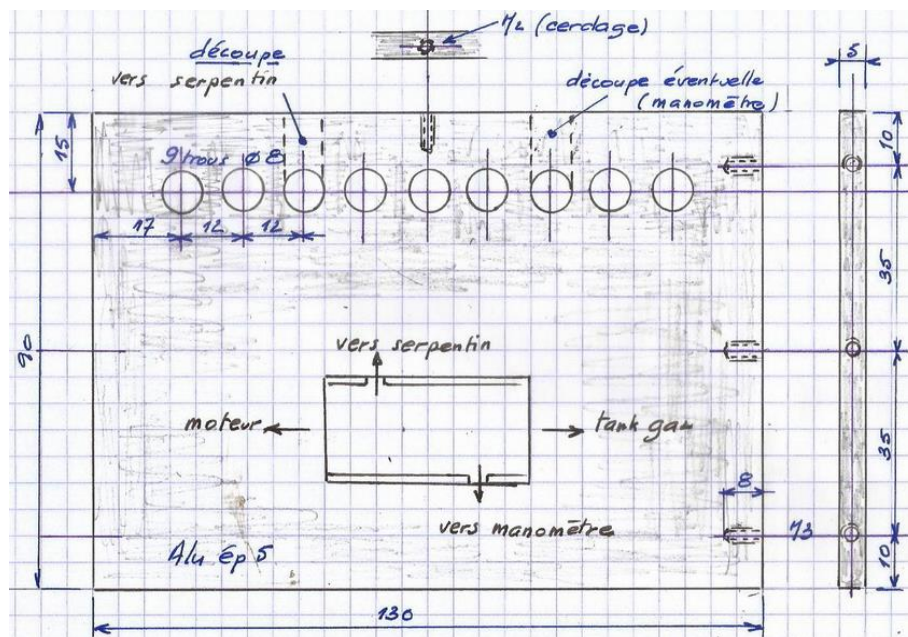 M2 (cerclage)
découpe
vers serpentin
découpe éventuelle
(manomètre)
5
15
10
9 trous ø 8
17
12
12
35
90
vers serpentin
moteur
tank gaz
35
8
vers manomètre
M3
Alu ép 5
10
130